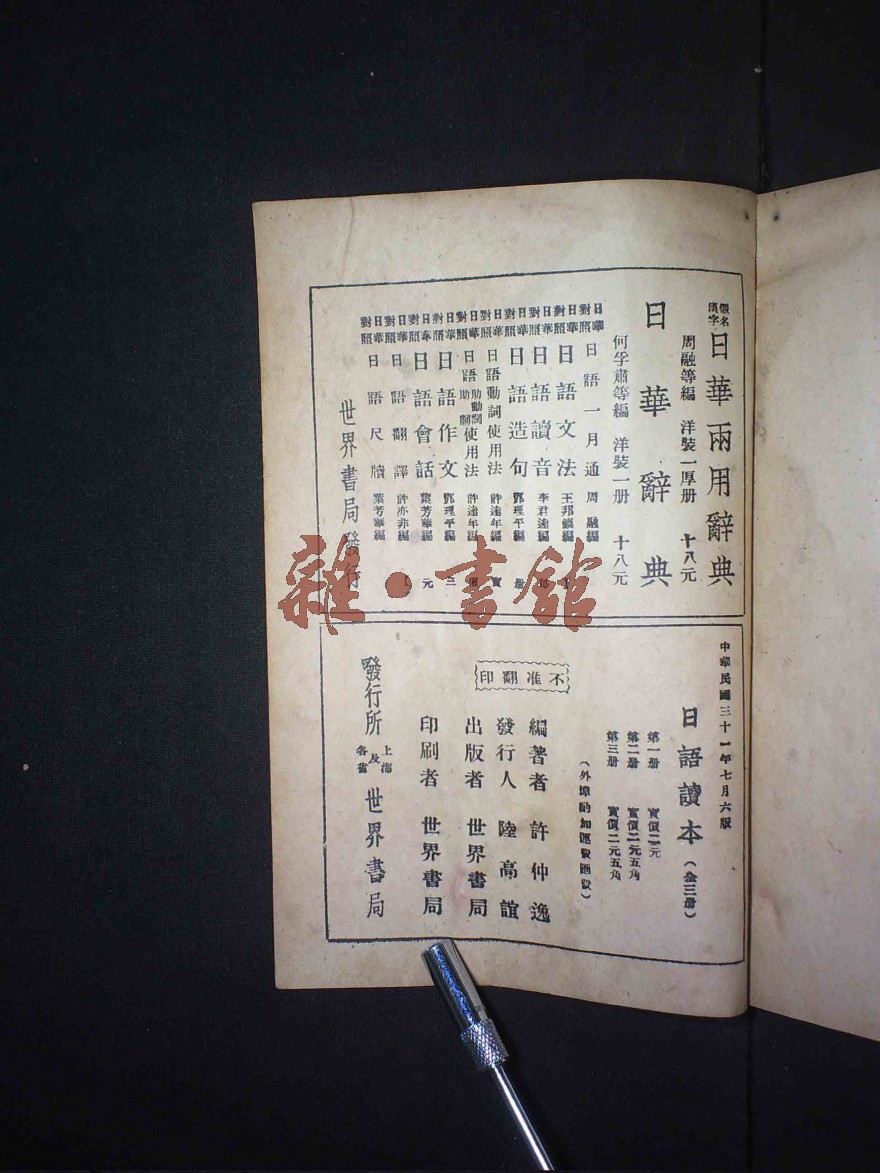 假名漢字 日華兩用辭典
周融等編 洋裝一厚册 十八元
日華辭典
何孚肅等編 洋裝一册 十八元
日華對照 日語一月通 周融編
日華對照 日語文法 編
日華對照 日語讀音 李君遠編
日華對照 日語造句 鄧理平編 册
日華對照 日語動詞使用法 許達年編 實
日華對照 日語助動詞助詞使用法 許達年編 價
日華對照 日語作文 鄧理平編 三
日華對照 日語會話 葉芳華編 元
日華對照 日語翻譯 許亦非編
日華對照 日語尺牘 葉芳華編
世界書局發行
中華民國三十一年七月六版
日語讀本(全三册)
第一册 實價二元
第二册 實價二元五角
第三册 實價二元五角
(外埠酌加運費匯費)
不准翻印
編著者 許仲逸
發行人 陸高誼
出版者 世界書局
印刷者 世界書局
發行所 上海及各省 世界書局
雜·書館